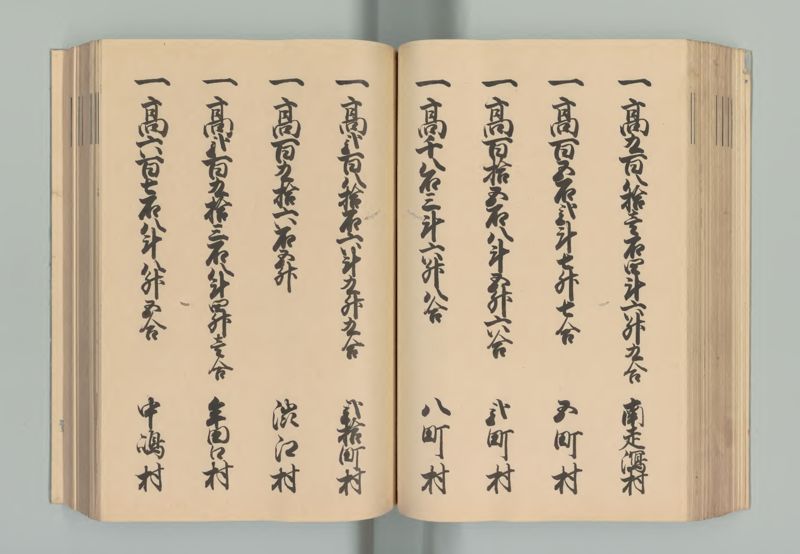 一高五百八拾壱石四斗六升九合 南走潟村
一高百五石弐斗七升七合 五町村
一高百拾五石八斗五升六合 弐町村
一高千八石三斗六升八合 八町村
一高弐百八拾石六斗九升九合 弐拾町村
一高百九拾六石五升 渋江村
一高弐百九拾三石八斗四升壱合 村
一高六百七石八斗八升五合 中潟村